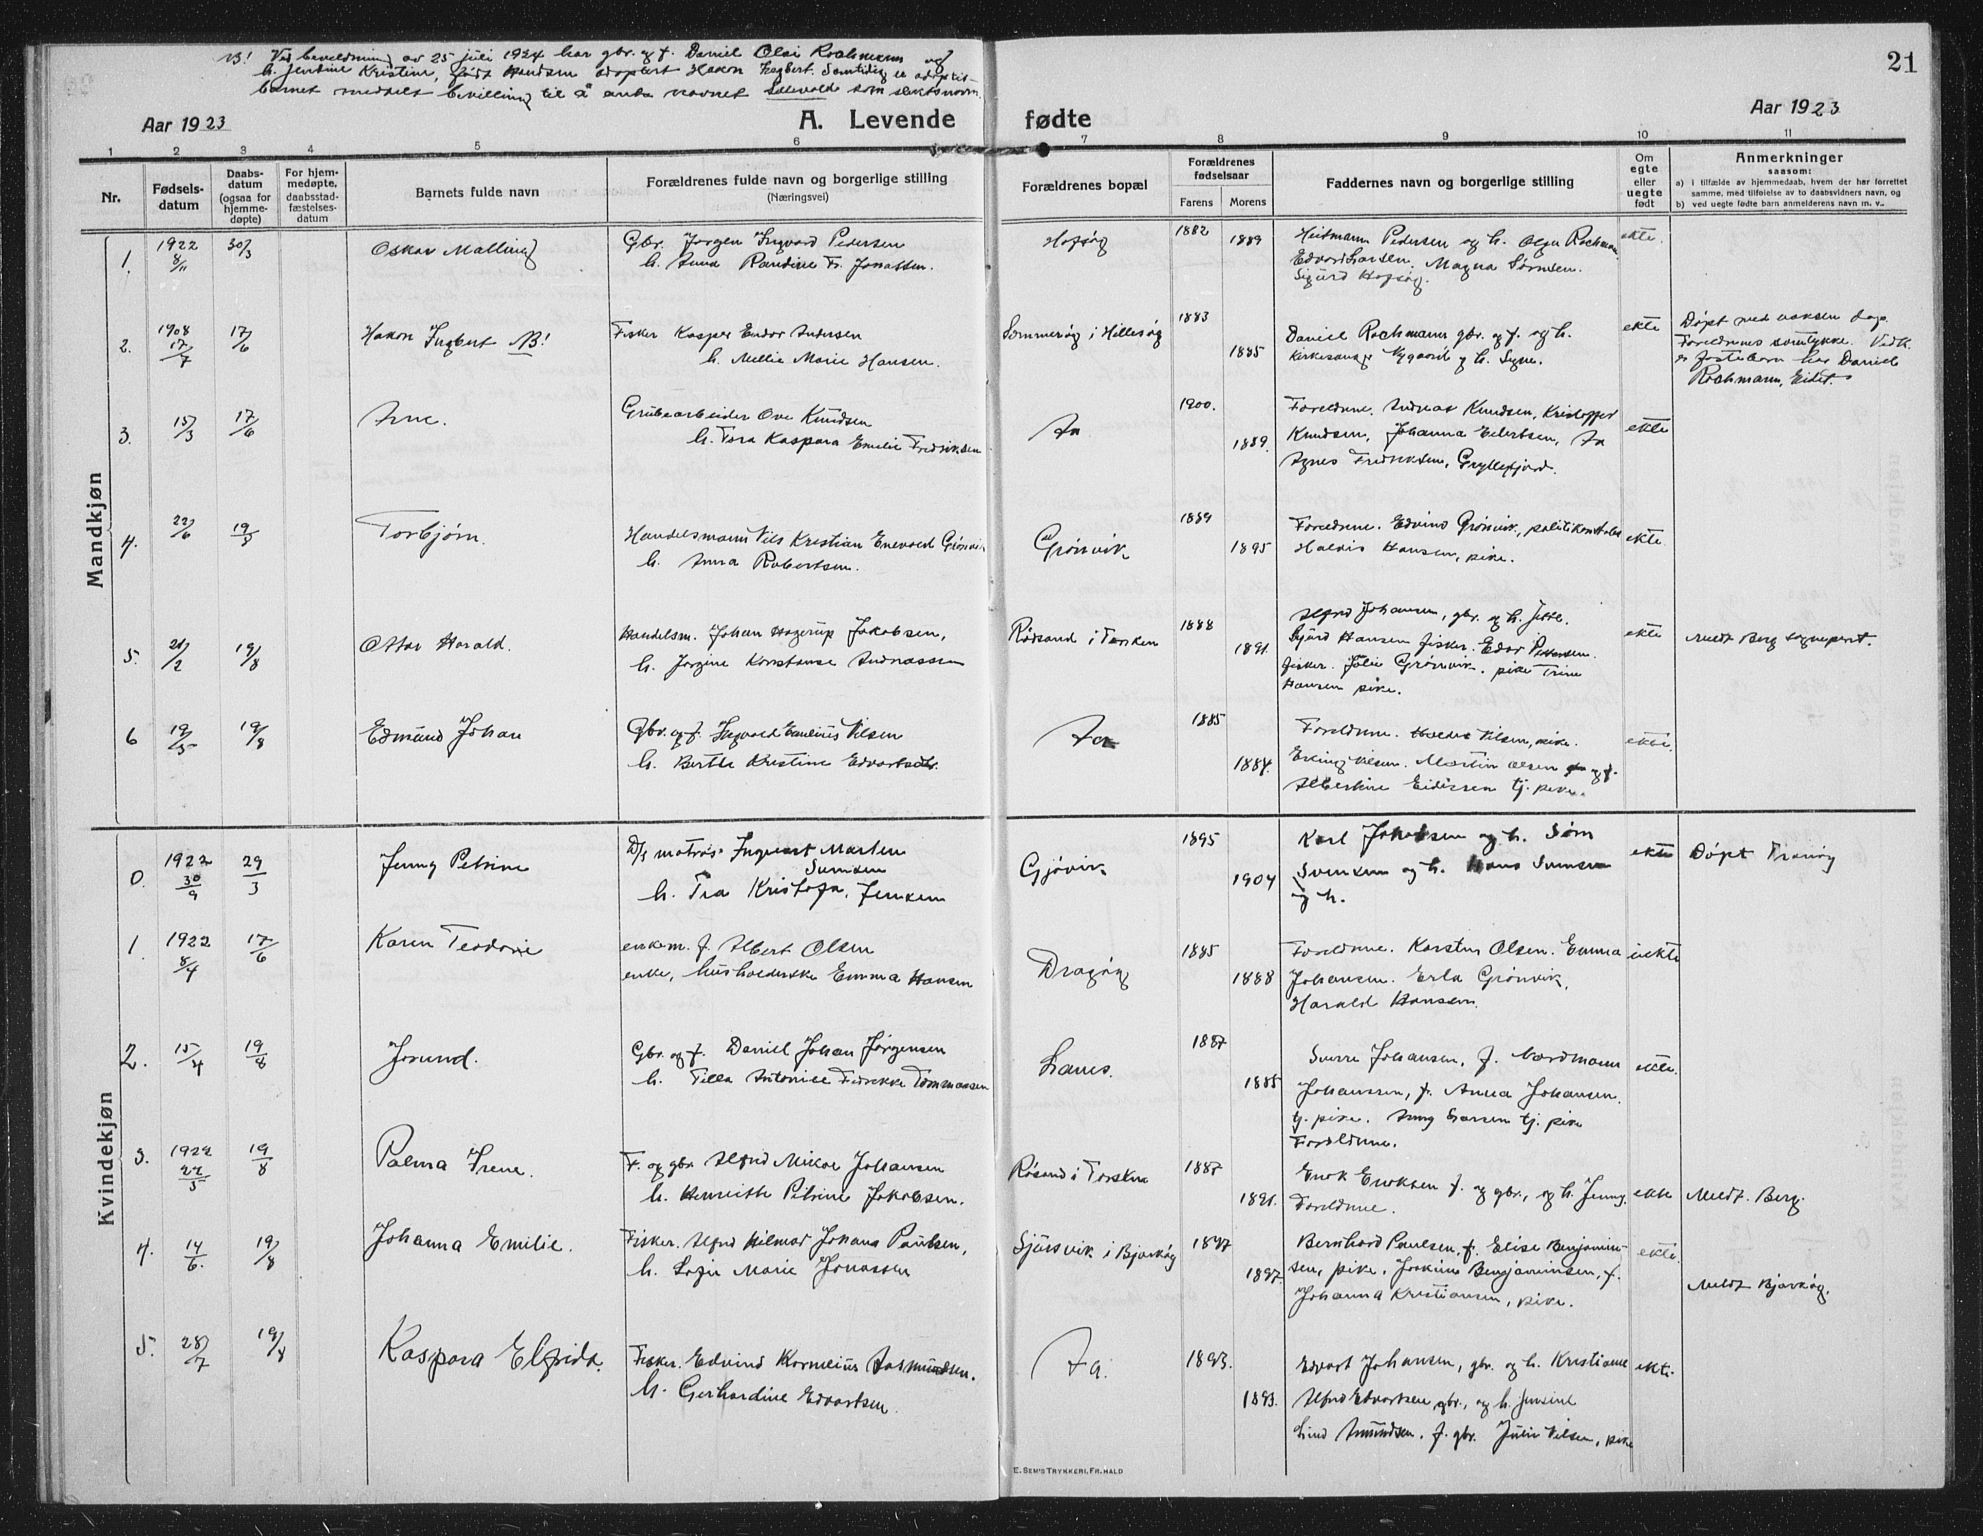 B! Ved bevilling av 25 juli 1924 har gbr. og f. Daniel Olai Rochmann og
h. Jendine Kristine, født Knudsen adoptert Hakon Ingbert. Samtidig er adoptiv-
barnet meddelt bevilling til å anta navnet som slektsnavn.
21
Aar 1923
A. Levende fødte
Aar 1923
1 2 3 4 5 6 7 8 9 10 11
Nr.
Fødsels-
datum
Daabs-
datum
(ogsaa for
hjemme-
døpte)
For hjem-
medøpte,
daabsstad-
fæstelses-
datum
Barnets fulde navn
Forældrenes fulde navn og borgerlige stilling
(Næringsvei)
Forældrenes bopæl
Forældrenes
fødselsaar
Farens Morens
Faddernes navn og borgerlige stilling
Om
egte
eller
uegte
født
Anmerkninger
saasom:
a) i tilfælde av hjemmedaab, hvem der har forrettet
samme, med tilføielse av to daabsvidners navn, og
b) ved uegte fødte barn anmelderens navn m. v..
Mandkjøn
1. 1922 8/11 30/3 Oskar Malling
Gbr. Jørgen Ingvard Pedersen
h. Anna Randine f. Jonassen.
Hofsøy 1882 1889
Heitmann Pedersen og h. Olga Rochmann
Edvard Larsen. Magna Sørensen.
Sigurd Hofsøy.
ekte.
2. 1908 17/7 17/6 Hakon Ingbert B!
Fisker Kasper Endor Andersen
h. Mellie Marie Hansen.
Sommerøy i Hillesøy 1883 1885
Daniel Rochmann gbr. og f. og h.
Kirkesanger Nygaard og h. Signe.
ekte
Døpt ved voksen dåp.
Foreldrenes samtykke.
er fosterbarn hos Daniel
Rochmann, Eidet.
3. 15/3 17/6 Arne.
Grubearbeider Ove Knudsen
h. Tora Kaspara Emelie Fredriksen
Aa 1900. 1889.
Foreldrene. Andreas Knudsen, Kristoffer
Knudsen, Johanna Eilertsen, Aa
Agnes Fredriksen, Gryllefjord.
ekte
4. 22/6 19/8 Torbjørn.
Handelsmann Nils Kristian Enevold Grønvik
h. Anna Robertsen.
Grønvik 1889 1895
Foreldrene. Edvind Grønvik, politikonstabel
Haldis Hansen, pike.
ekte.
5. 21/2 19/8 Ottar Harald.
Handelsm. Johan Hagerup Jakobsen,
h. Jorgine Konstanse Andreassen
Rødsand i Torsken 1888 1891.
Alfred Johansen, gbr. og h. Jette.
Sigurd Hansen fisker. Edor Pettersen.
fisker. Julie Grønvik. pike Trine
Hansen pike.
ekte
Meldt Berg sogneprest.
6 19/5 19/8 Edmund Johan
Gbr. og f. Ingvald Emelius Nilsen
h. Berthe Kristine Edvartsdtr.
Aa 1885 1884.
Foreldrene. Nilsen, pike.
Erling Nilsen. Martin Olsen og f.
Albertine Eidissen tj. pike.
ekte.
Kvindekjøn
0. 1922 30/9 29/3 Jenny Petrine
D/s matros Ingvart Marten
Svensen
h. Tea Kristofa. Jensen
Gjøvik 1895 1904
Karl Jakobsen og h. Søren
Svensen og h. Hans Svensen
og h.
ekte
Døpt Tranøy
1. 1922 8/4 17/6 Karen Teodorie
enkem. f. Albert Olsen
enke, husholderske Emma Hansen
Dragøy 1885 1888
Foreldrene. Karsten Olsen. Emma
Johansen. Erla Grønvik,
Harald Hansen.
uekte
2. 15/4 19/8 Jorund.
Gbr. og f. Daniel Johan Jørgensen
h. Tella Antonice Fredrikke Tommassen
Lanes. 1887 1885
Sverre Johansen, f. Nordmann
Johanssen, f. Anna Johansen.
tj. pike. Larsen tj. pike
Foreldrene.
ekte.
3. 1922 22/5 19/8 Palma Irene.
F. og gbr. Alfred Mikal Johansen
h. Henriette Petrine Jakobsen.
Rødsand i Torsken 1887 1891.
Enok Enoksen f. og gbr., og h. Jenny.
Foreldrene.
ekte
Meldt. Berg.
4. 14/6. 19/8 Johanna Emilie.
Fisker. Alfred Hilmar Johans Paulsen,
h. Sofie Marie Jonassen
Sjursvik i Bjarkøy 1897 1897
Bernhard Paulsen, f. Elise Benjamin-
sen, pike. Joakim Benjaminsen, f.
Johanna Kristiansen, pike.
ekte.
Meldt Bjarkøy.
5. 28/7 19/8 Kaspara Elfrida.
Fisker. Edvind Kornelius Aasmundsen.
h. Gerhardine Edvartsen.
Aa. 1893. 1893.
Edvart Johansen, gbr. og h. Kristiane
Alfred Edvartsen gbr., og h. Jensine
Amundsen. f. gbr. Julie Nilsen, pike
ekte.
E. SEM'S TRYKKERI, FR. HALD